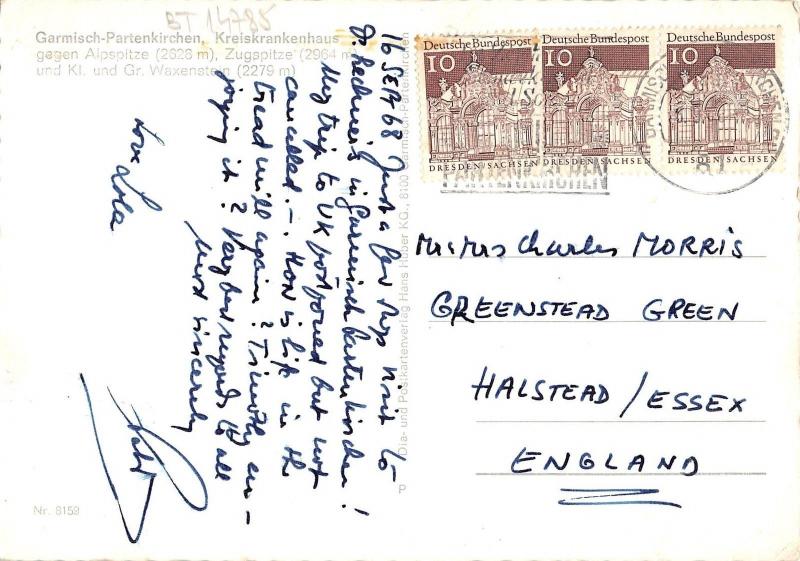 BT 14785
Garmisch-Partenkirchen, Kreiskrankenhaus
gegen Alpspitze (2628 m), Zugspitze (2964 m)
und Kl. und Gr. Waxenstein (2279 m)
16 SEPT 68 Just a few days visit to
Dr. in Garmisch Partenkirchen!
My trip to UK postponed but not
cancelled. — How is life in the
treadmill again? Timothy en-
joying it? Very best regards to all
most sincerely
Love Lola
Nr. 8159
P Dia- und Postkartenverlag Hans Huber KG., 8100 Garmisch-Partenkirchen
Deutsche Bundespost
10
DRESDEN/SACHSEN
Deutsche Bundespost
10
DRESDEN/SACHSEN
Deutsche Bundespost
10
DRESDEN/SACHSEN
PARTENKIRCHEN
Mr & Mrs Charles MORRIS
GREENSTEAD GREEN
HALSTEAD / ESSEX
ENGLAND